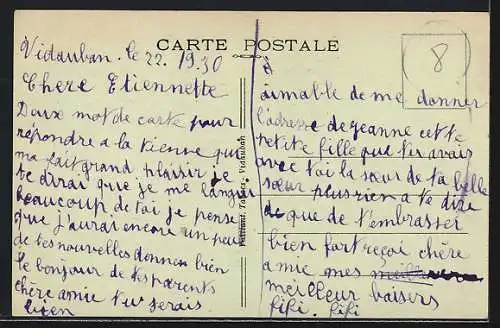 CARTE POSTALE
8
Vidauban. le 22. 1930
Chere Etiennette
Deux mot de carte pour
répondre a la tienne qui
ma fait grand plaisir je
te dirai que je me langui
beaucoup de toi je pense
que j'aurai encore un peu
de tes nouvelles donnes bien
le bonjour de tes parents
chère amie tu serais
bien
aimable de me donner
l'adresse de jeanne cette
petite fille que tu avais
avec toi la sœur de ta belle
sœur plus rien a te dire
que de t'embrasser
bien fort reçoi chère
amie mes
meilleur baisers
fifi. fifi